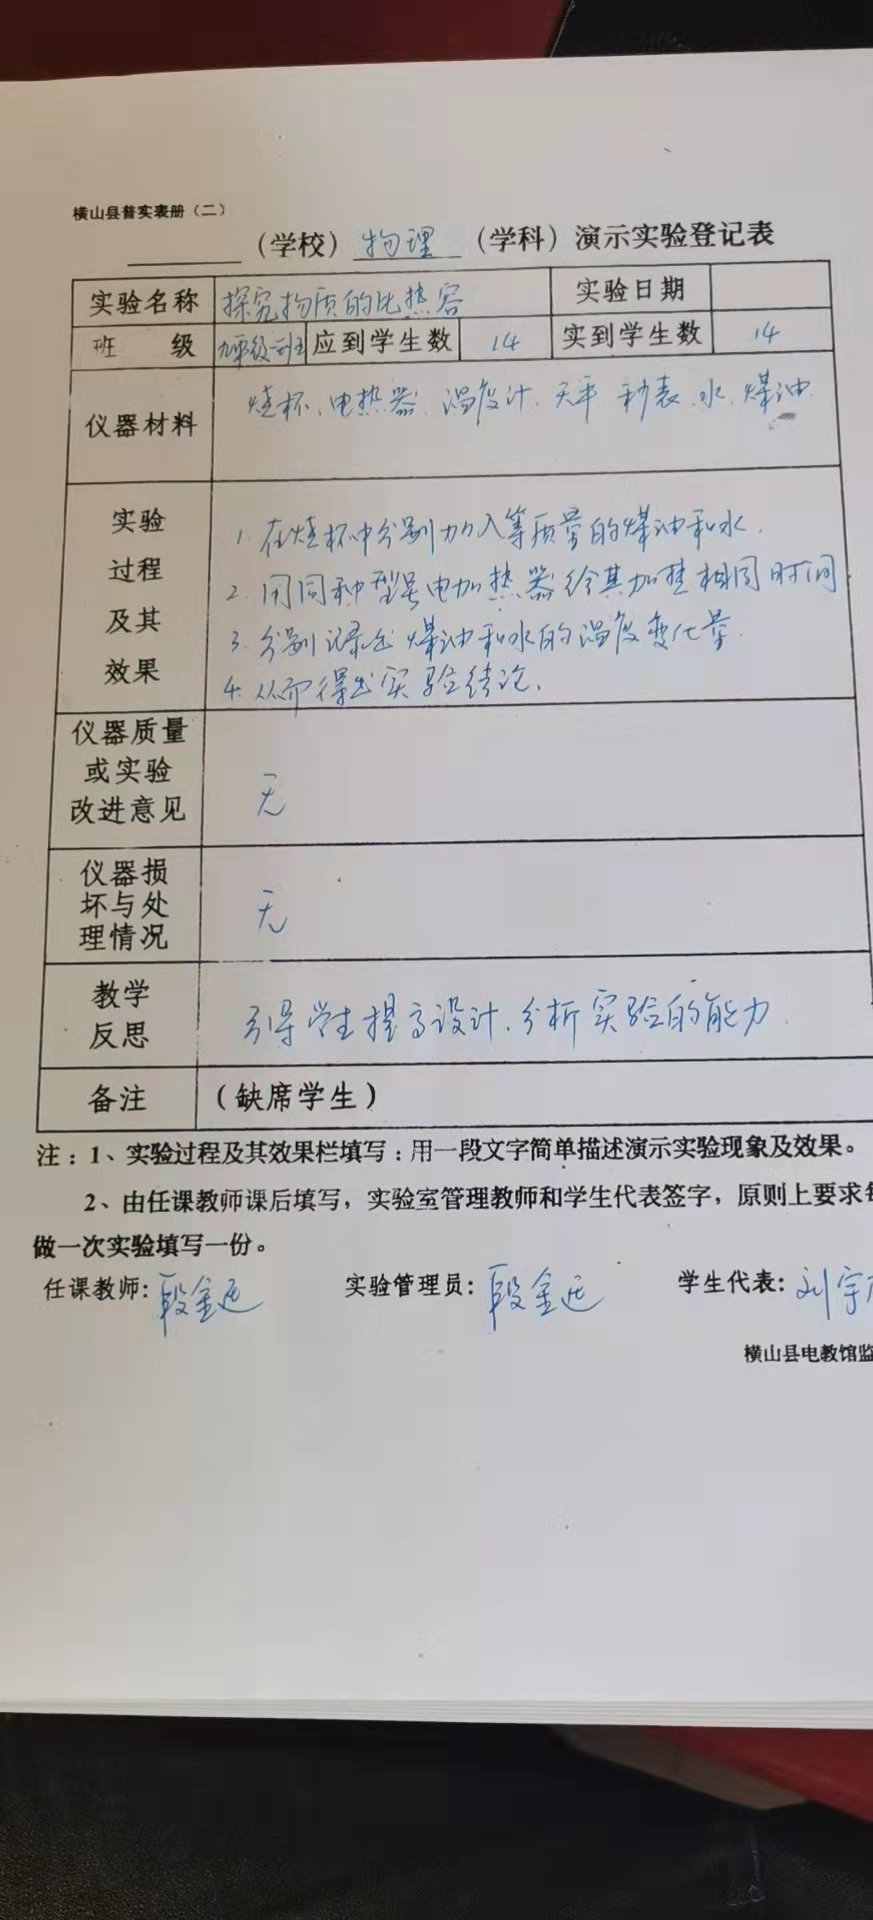 横山县普实表册（二）
（学校）物理（学科）演示实验登记表
实验名称 探究物质的比热容 实验日期
班 级 九年级一班 应到学生数 14 实到学生数 14
仪器材料 烧杯、电热器、温度计、天平 秒表、水、煤油
实验
过程
及其
效果
1. 在烧杯中分别加入等质量的煤油和水.
2. 用同种型号电加热器给其加热相同时间
3. 分别记录出煤油和水的温度变化量.
4. 从而得出实验结论.
仪器质量
或实验
改进意见
无
仪器损
坏与处
理情况
无
教学
反思
引导学生提高设计、分析实验的能力.
备注 （缺席学生）
注：1、实验过程及其效果栏填写：用一段文字简单描述演示实验现象及效果。
2、由任课教师课后填写，实验室管理教师和学生代表签字，原则上要求每
做一次实验填写一份。
任课教师: 段金远 实验管理员: 段金远 学生代表: 刘宇
横山县电教馆监